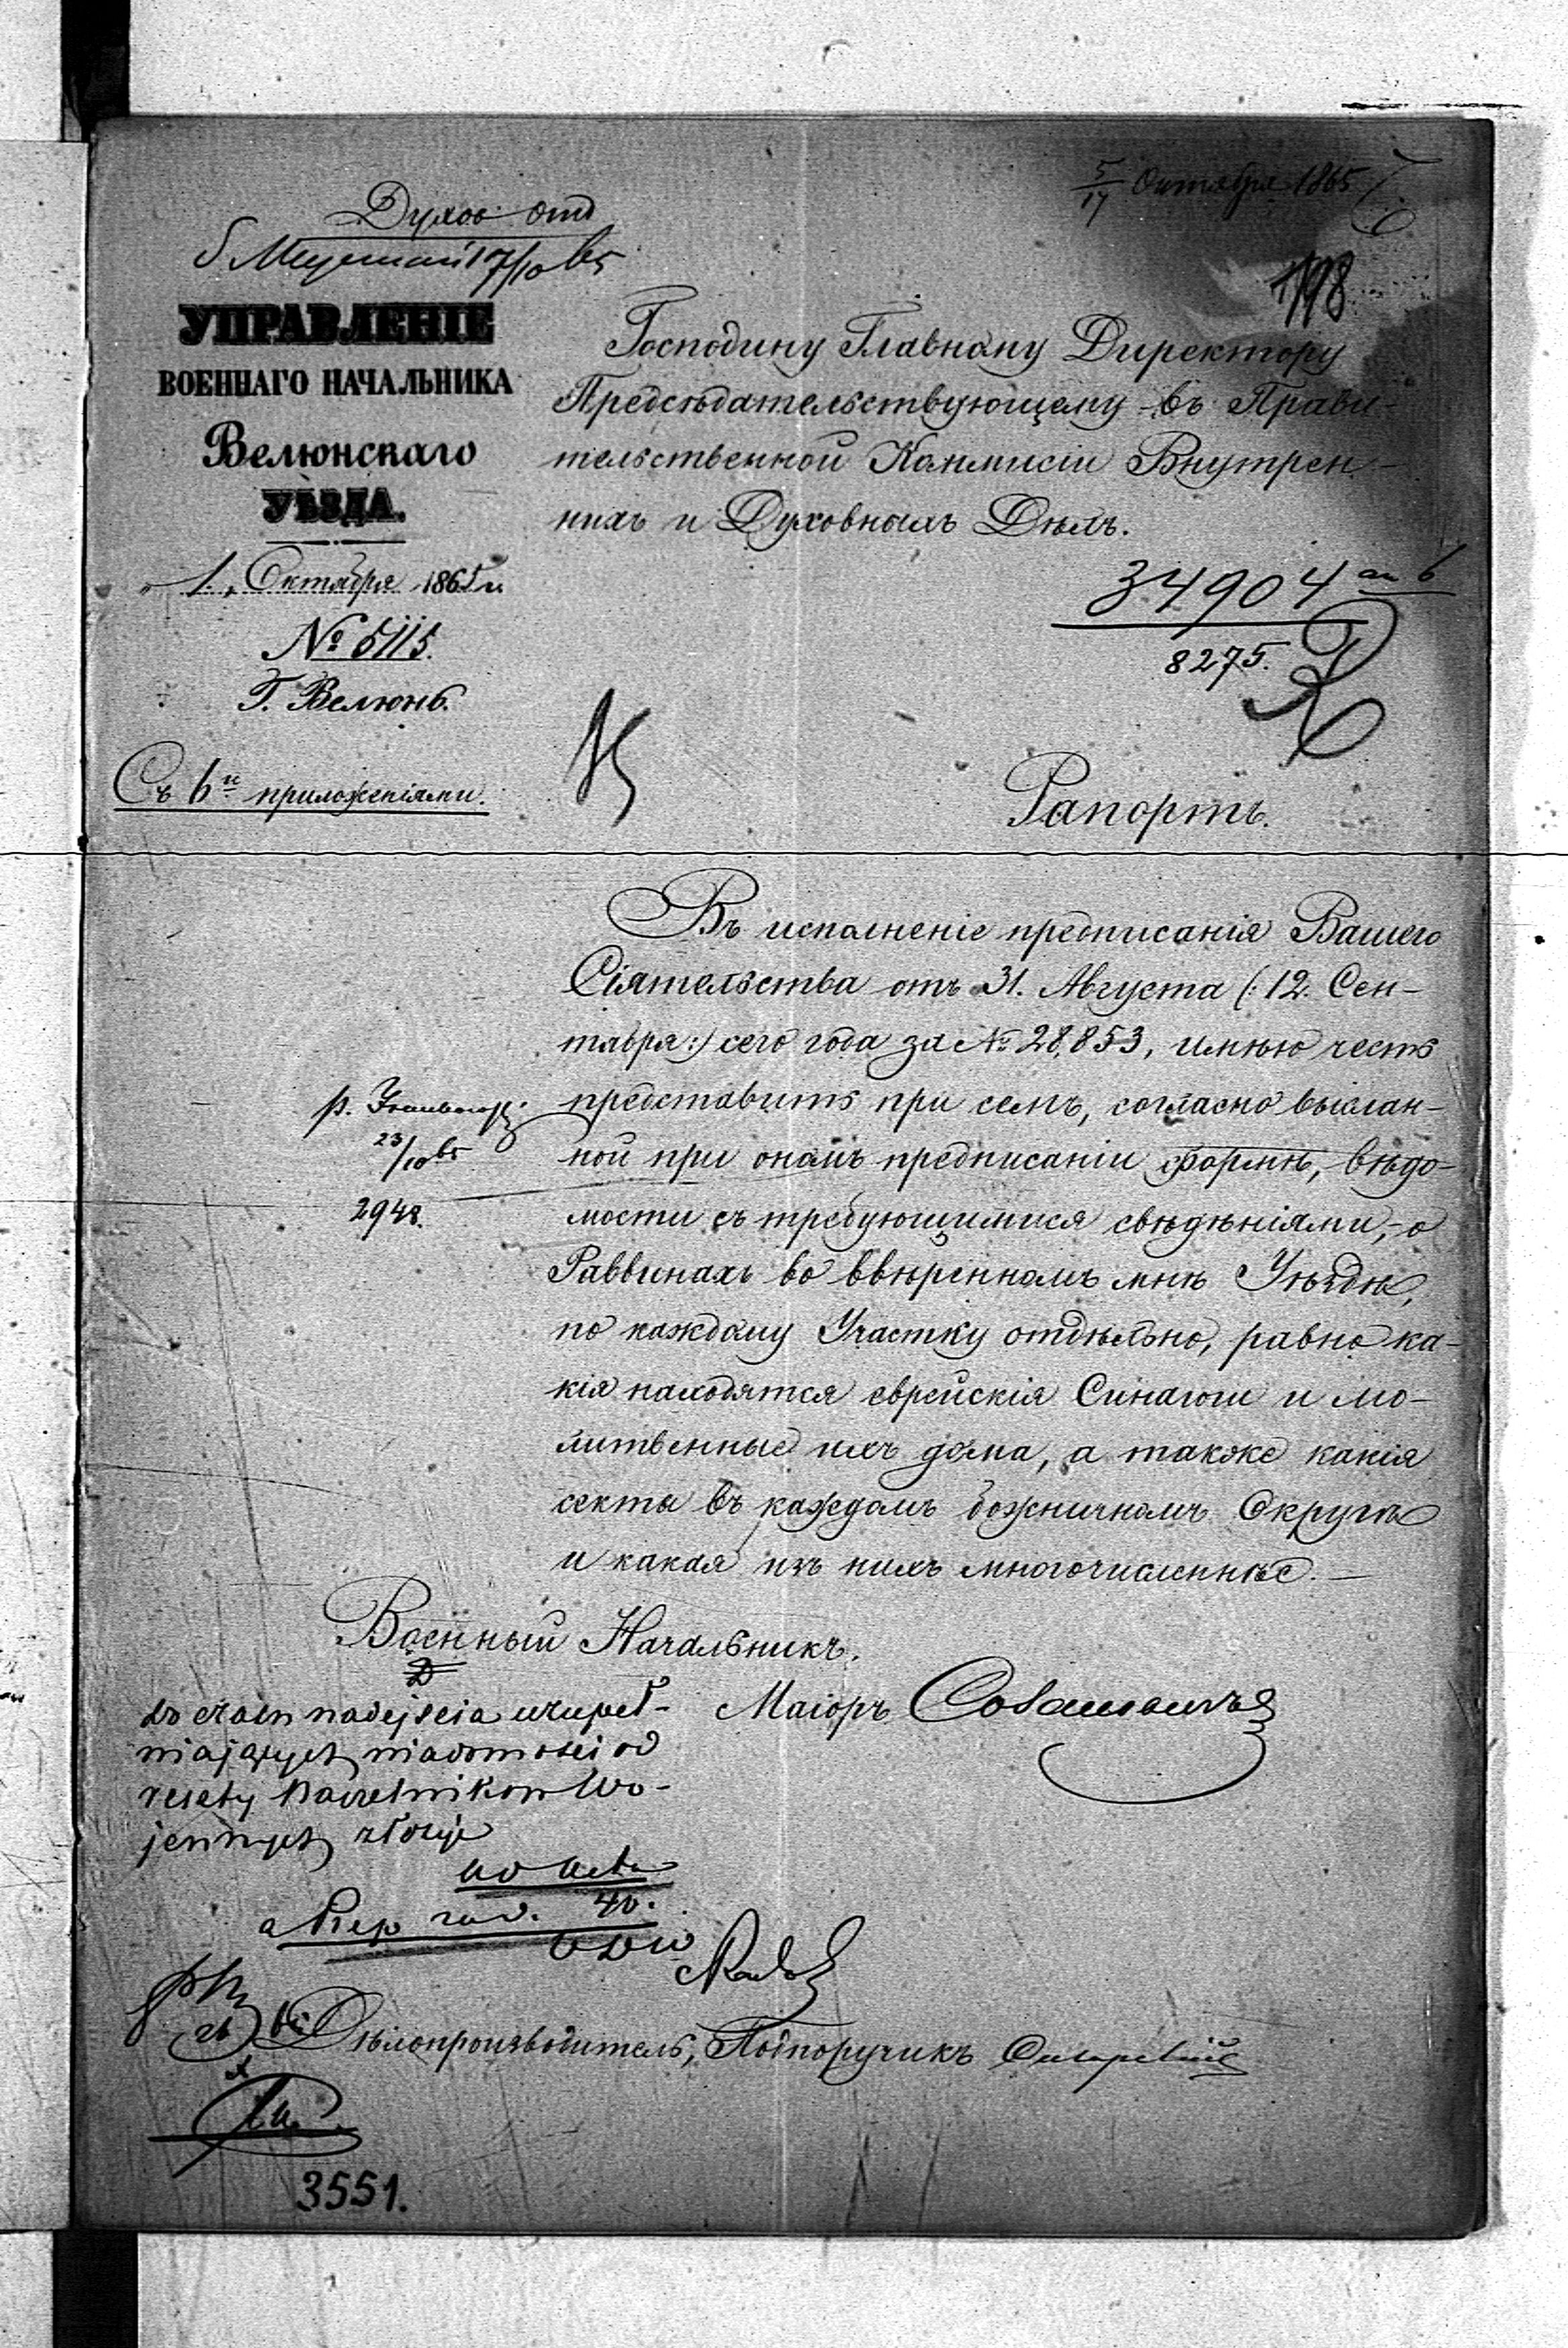 5/17 Октября 1865
Духов отд
17/10 65
198
УПРАВЛЕНІЕ
ВОЕННАГО НАЧАЛЬНИКА
Велюнскаго
УѢЗДА.
1. Октября 1865 г.
№ 5115.
Г. Велюнь.
Съ 6ю приложеніями.
Господину Главному Директору
Предсѣдательствующему въ Прави-
тельственной Коммисіи Внутрен-
нихъ и Духовныхъ Дѣлъ.
34904
8275.
Рапортъ.
Въ исполненіе предписанія Вашего
Сіятельства отъ 31. Августа (: 12. Сен-
тября:) сего года за № 28,853, имѣю честь
представить при семъ, согласно выслан-
ной при ономъ предписаніи формѣ, вѣдо-
мости съ требующимися свѣдѣніями, о
Раввинахъ во ввѣренномъ мнѣ Уѣздѣ,
по каждому Участку отдѣльно, равно ка-
кія находятся еврейскія Синагоги и мо-
литвенные ихъ дома, а также какія
секты въ каждомъ божничномъ Округѣ
и какая изъ нихъ многочисленнѣе. —
23/10 65
2948.
Военный Начальникъ,
Маіоръ
do czasu nadejścia uzupeł-
niających wiadomości od
reszty Naczelników Wo-
jennych złożyć
do akt
Дѣлопроизводитель, Подпоручикъ
3551.